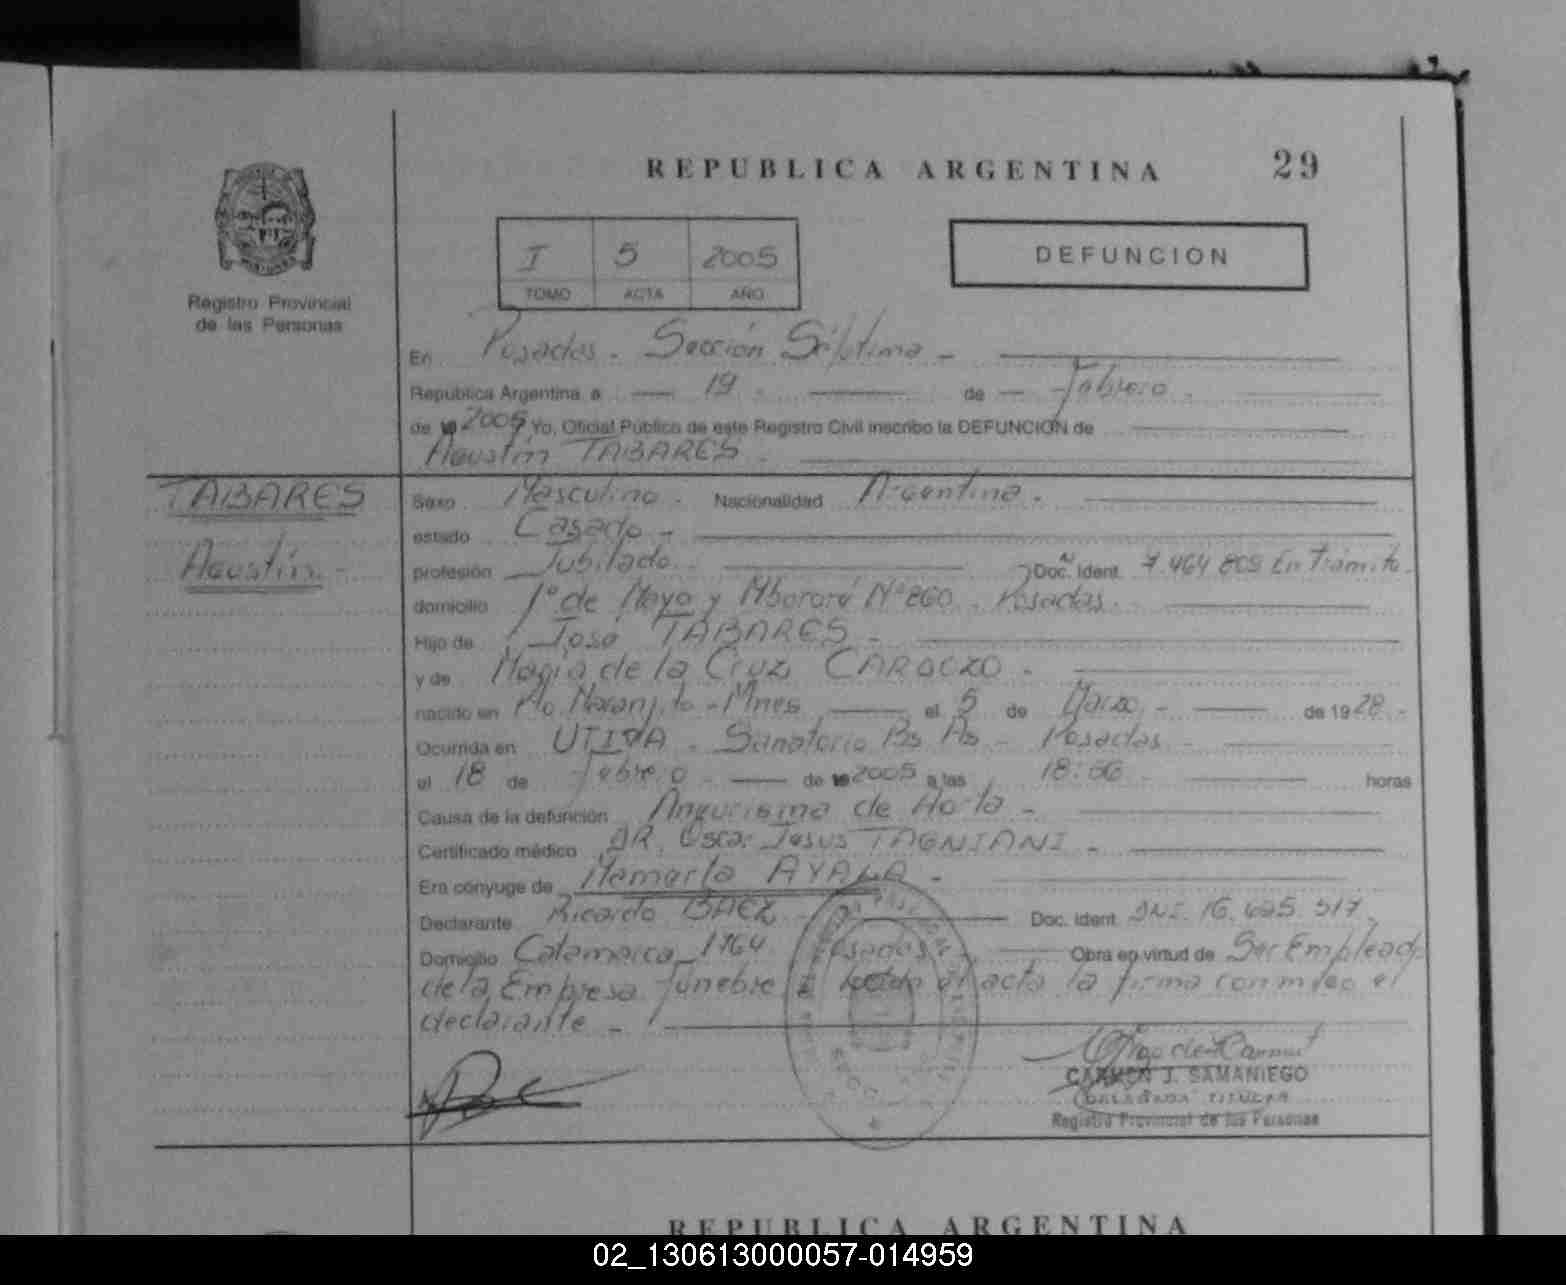 REPUBLICA ARGENTINA 29
I 5 2005
TOMO ACTA AÑO
DEFUNCION
Registro Provincial
de las Personas
En Posadas - Sección Séptima -
República Argentina a 19 de Febrero
de 19 2005 Yo, Oficial Público de este Registro Civil inscribo la DEFUNCION de
Agustín TABARES -
TABARES
Agustín -
Sexo Masculino - Nacionalidad Argentina -
estado Casado -
profesión Jubilado Doc. Ident. 7.464.809 En Trámite
domicilio 1º de Mayo y Mbororé Nº 860 - Posadas
Hijo de José TABARES -
y de María de la Cruz CARDOZO -
nacido en Naranjito - Mnes el 5 de Marzo - de 1928 -
Ocurrida en Sanatorio Bs As - Posadas -
el 18 de Febrero - de 19 2005 a las horas
Causa de la defunción Aneurisma de Aorta -
Certificado médico DR. Oscar Jesus TAGNIANI -
Era cónyuge de AYALA -
Declarante Ricardo BAEZ - Doc. Ident. DNI. 16.695.517
Domicilio Catamarca 1764 Posadas - Obra en virtud de Ser Empleado
de la Empresa fúnebre leída el acta la firma conmigo el
declarante -
CARMEN J. SAMANIEGO
DELEGADA TITULAR
Registro Provincial de las Personas
REPUBLICA ARGENTINA
02_130613000057-014959